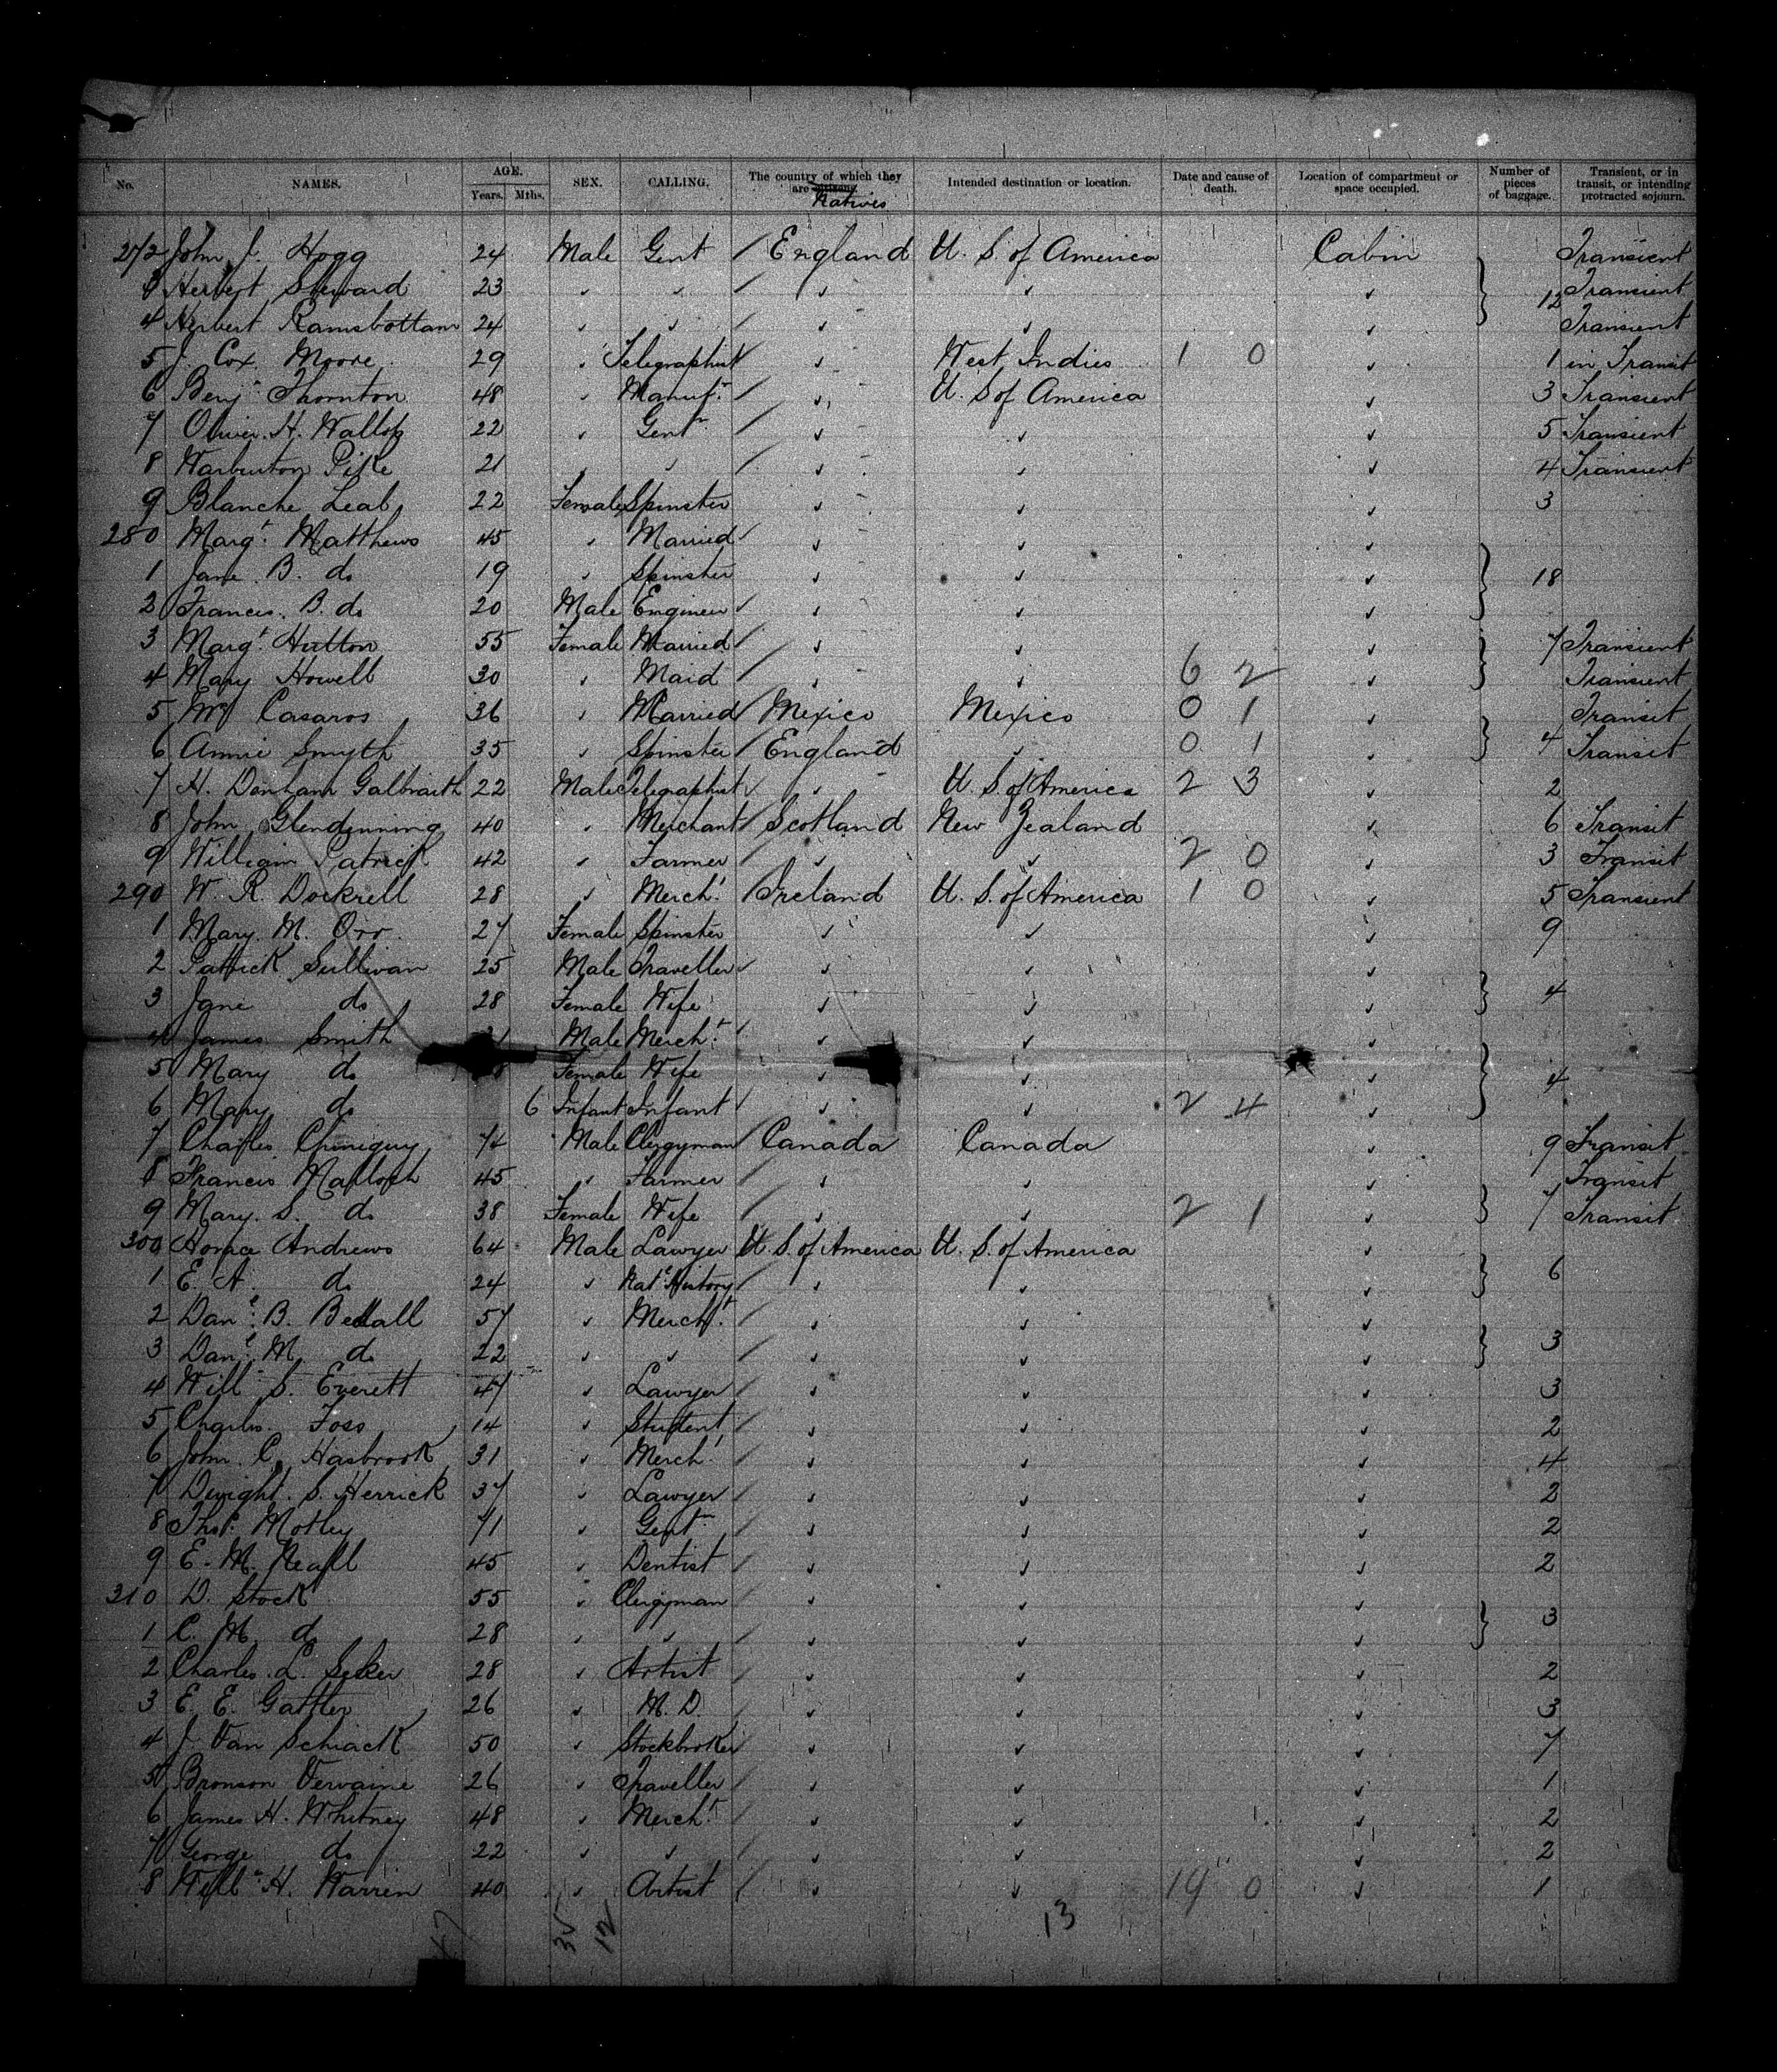 No. NAMES. AGE. Years. Mths. SEX. CALLING. The country of which they are citizens Natives Intended destination or location. Date and cause of death. Location of compartment or space occupied. Number of pieces of baggage. Transient, or in transit, or intending protracted sojourn.
272 John J. Hogg 24 Male Gent / England U. S. of America Cabin Transient
3 Herbert Steward 23 " " / " " " 12 Transient
4 Herbert Ramsbottam 24 " " / " " " Transient
5 J. Cox Moore 29 " Telegraphist " West Indies 1 0 " 1 in Transit
6 Benjn Thornton 48 " Manufr / " U. S of America " 3 Transient
7 Oliver H. Wallop 22 " Gentn / " " " 5 Transient
8 Warburton Pike 21 " " / " " " 4 Transient
9 Blanche Leal 22 Female Spinster " " " 3
280 Margt Matthews 45 " Married " " "
1 Jane B. do 19 " Spinster " " " 18
2 Francis B. do 20 Male Engineer " " "
3 Margt Hutton 55 Female Married / " " " 7 Transient
4 Mary Howell 30 " Maid / " " 6 2 " Transient
5 Mrs Casaros 36 " Married / Mexico Mexico 0 1 " Transit
6 Annie Smyth 35 " Spinster / England " 0 1 " 4 Transit
7 H. Denham Galbraith 22 Male Telegraphist " U. S. of America 2 3 " 2
8 John Glendinning 40 " Merchant / Scotland New Zealand " 6 Transit
9 William Patrick 42 " Farmer / " " 2 0 " 3 Transit
290 W. R. Dockrell 28 " Mercht / Ireland U. S. of America 1 0 " 5 Transient
1 Mary M. Orr 27 Female Spinster " " " 9
2 Patrick Sullivan 25 Male Traveller " " "
3 Jane do 28 Female Wife " " " 4
4 James Smith Male Mercht / " " "
5 Mary do Female Wife " " " 4
6 Mary do 6 Infant Infant " " 2 4 "
7 Charles Chiniquy 74 Male Clergyman / Canada Canada " 9 Transit
8 Francis 45 " Farmer / " " " Transit
9 Mary S. do 38 Female Wife / " " 2 1 " 7 Transit
300 Horace Andrews 64 Male Lawyer U. S. of America U. S. of America "
1 E. A. do 24 " Natl History / " " " 6
2 Danl B. Bedall 57 " Mercht / " " "
3 Danl M. do 22 " " / " " " 3
4 Willm S. Everett 47 " Lawyer / " " " 3
5 Charles Foss 14 " Student / " " " 2
6 John C. Hasbrook 31 " Mercht / " " " 4
7 Dwight S. Herrick 37 " Lawyer / " " " 2
8 Thos Motley 71 " Gentn / " " " 2
9 E. M. Neall 45 " Dentist / " " " 2
310 D. Stock 55 " Clergyman " " "
1 C. M. do 28 " " / " " " 3
2 Charles L. 28 " Artist / " " " 2
3 E. E. Gattler 26 " M. D. / " " " 3
4 J Van Schiack 50 " Stockbroker / " " " 7
5 Bronson Vervaine 26 " Traveller / " " " 1
6 James H. Whitney 48 " Mercht / " " " 2
7 George do 22 " " / " " " 2
8 Willm H. Warren 40 " Artist / " " 19 0 " 1
47 35 12 13